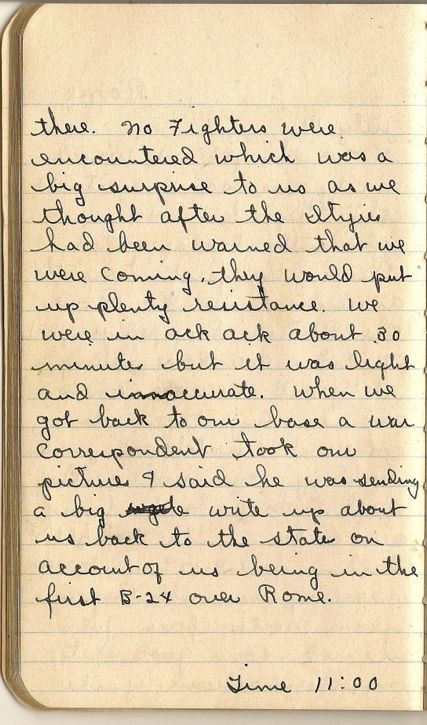 there. No Fighters were
encountered which was a
big surprise to us as we
thought after the Ityies
had been warned that we
were coming, they would put
up plenty resistance. We
were in ack ack about 30
minutes but it was light
and innaccurate. When we
got back to our base a war
correspondent took our
picture & said he was sending
a big write up about
us back to the state on
account of us being in the
first B-24 over Rome.
Time 11:00